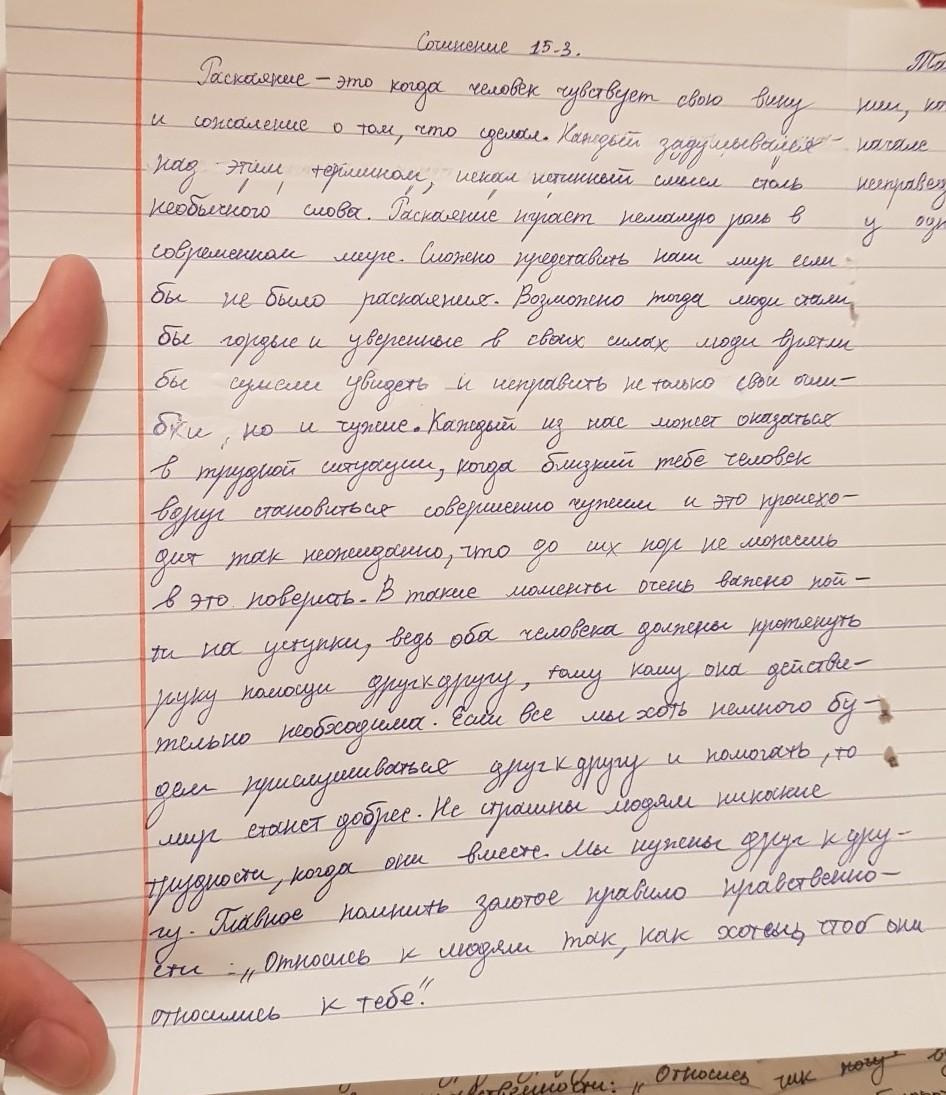 Сочинение 15-3.
Раскаяние – это когда человек чувствует свою вину
и сожаление о том, что сделал. Каждый задумывался
над этим термином, искал истинный смысл столь
необычного слова. Раскаяние играет немалую роль в
современном мире. Сложно представить наш мир если
бы не было раскаяния. Возможно тогда люди стали
бы гордые и уверенные в своих силах люди врятли
бы сумели увидеть и исправить не только свои оши-
бки, но и чужие. Каждый из нас может оказаться
в трудной ситуации, когда близкий тебе человек
вдруг становиться совершенно чужим и это происхо-
дит так неожиданно, что до сих пор не можешь
в это поверить. В такие моменты очень важно пой-
ти на уступки, ведь оба человека должны протянуть
руку помощи друг к другу, тому кому она действи-
тельно необходима. Если все мы хоть немного бу-
дем прислушиваться друг к другу и помогать, то
мир станет добрее. Не страшны людям никакие
трудности, когда они вместе. Мы нужны друг к дру-
гу. Главное помнить золотое правило нравственно-
сти: „Относись к людям так, как хотешь, чтоб они
относились к тебе."
начале
у
„Относись